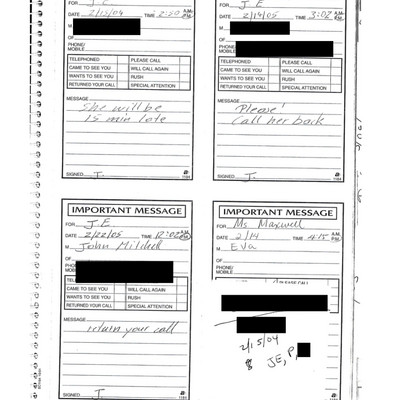 FOR J.E
DATE 2/15/04 TIME 2:50 A.M. P.M.
M
OF
PHONE/
MOBILE
TELEPHONED PLEASE CALL
CAME TO SEE YOU WILL CALL AGAIN
WANTS TO SEE YOU RUSH
RETURNED YOUR CALL SPECIAL ATTENTION
MESSAGE
She will be
15 min late
SIGNED J.
1184
FOR J.E
DATE TIME 3:02 A.M. P.M.
M
OF
PHONE/
MOBILE
TELEPHONED PLEASE CALL
CAME TO SEE YOU WILL CALL AGAIN
WANTS TO SEE YOU RUSH
RETURNED YOUR CALL SPECIAL ATTENTION
MESSAGE
Please
Call her back
SIGNED J.
1184
IMPORTANT MESSAGE
FOR J.E
DATE 2/22/05 TIME
M John
OF
PHONE/
MOBILE
CAME TO SEE YOU WILL CALL AGAIN
WANTS TO SEE YOU RUSH
RETURNED YOUR CALL SPECIAL ATTENTION
MESSAGE
return your call
SIGNED J.
1184
IMPORTANT MESSAGE
FOR Ms Maxwell
DATE 2/14 TIME 4:15 A.M. P.M.
M Eva
OF
PHONE/
2/15/04
JE, P,